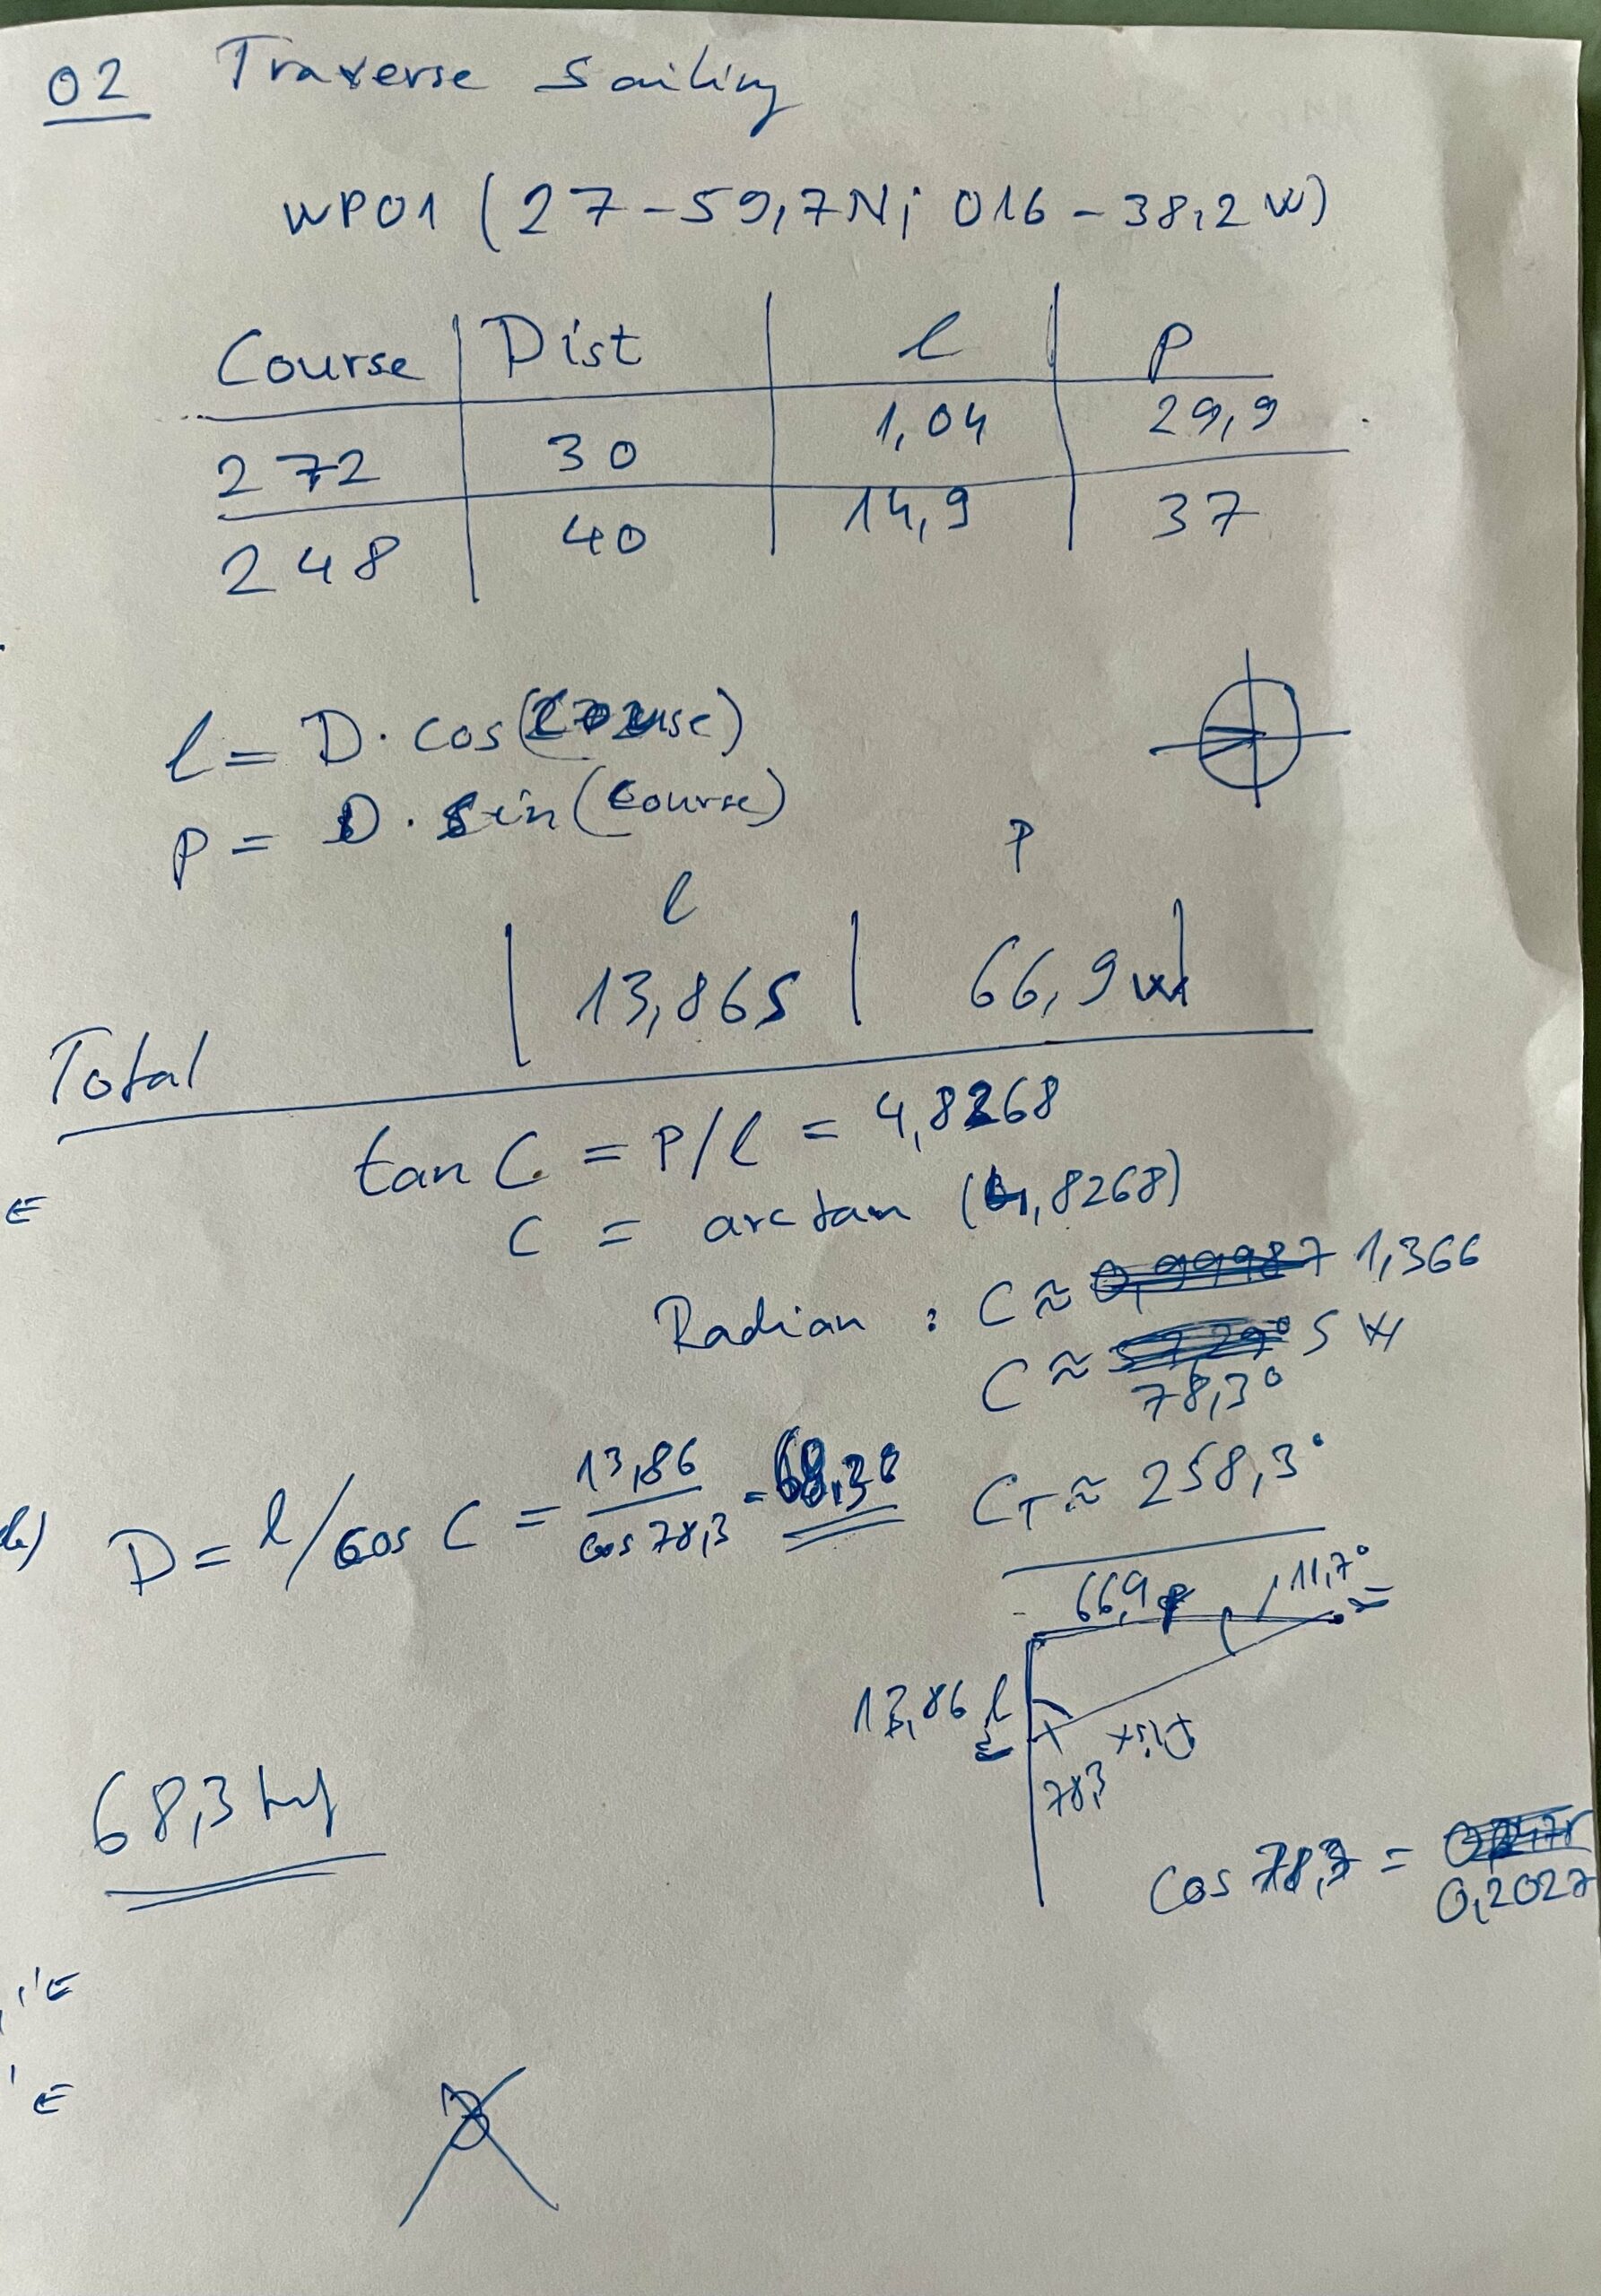 02 Traverse Sailing
WP01 (27-59,7N; 016-38,2W)
Course Dist l p
272 30 1,04 29,9
248 40 14,9 37
l = D · cos(Course)
p = D · sin(Course)
l P
Total 13,86S 66,9W
tan C = P/l = 4,8268
E
C = arctan (4,8268)
Radian : C ≈ 1,366
C ≈ S W
78,3°
CT ≈ 258,3°
D = l/cos C = 13,86 / cos 78,3 = 68,38
66,9 p 11,7°
13,86 l
78,3
68,3
cos 78,3 = 0,2027
'E
'E